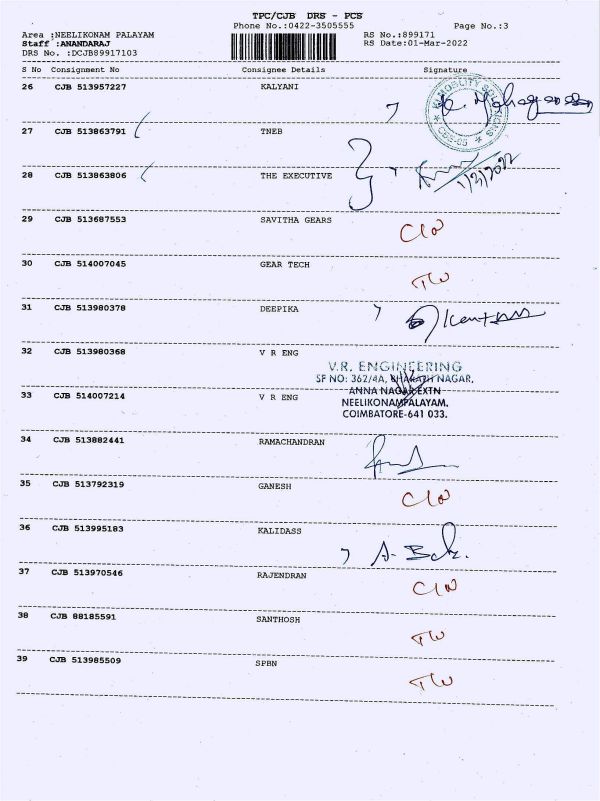 TPC/CJB DRS - PCS
Phone No.:0422-3505555 Page No.:3
Area :NEELIKONAM PALAYAM RS No.:899171
Staff :ANANDARAJ RS Date:01-Mar-2022
DRS No. :DCJB89917103
S No Consignment No Consignee Details Signature
26 CJB 513957227 KALYANI
27 CJB 513863791 TNEB
28 CJB 513863806 THE EXECUTIVE
1/3/2022
29 CJB 513687553 SAVITHA GEARS
CLN
30 CJB 514007045 GEAR TECH
TW
31 CJB 513980378 DEEPIKA
32 CJB 513980368 V R ENG
V.R. ENGINEERING
SF NO: 362/4A, BHARATH NAGAR,
33 CJB 514007214 V R ENG
ANNA NAGAR EXTN
NEELIKONAMPALAYAM,
COIMBATORE-641 033.
34 CJB 513882441 RAMACHANDRAN
35 CJB 513792319 GANESH
CLN
36 CJB 513995183 KALIDASS
37 CJB 513970546 RAJENDRAN
CLN
38 CJB 88185591 SANTHOSH
TW
39 CJB 513985509 SPBN
TW